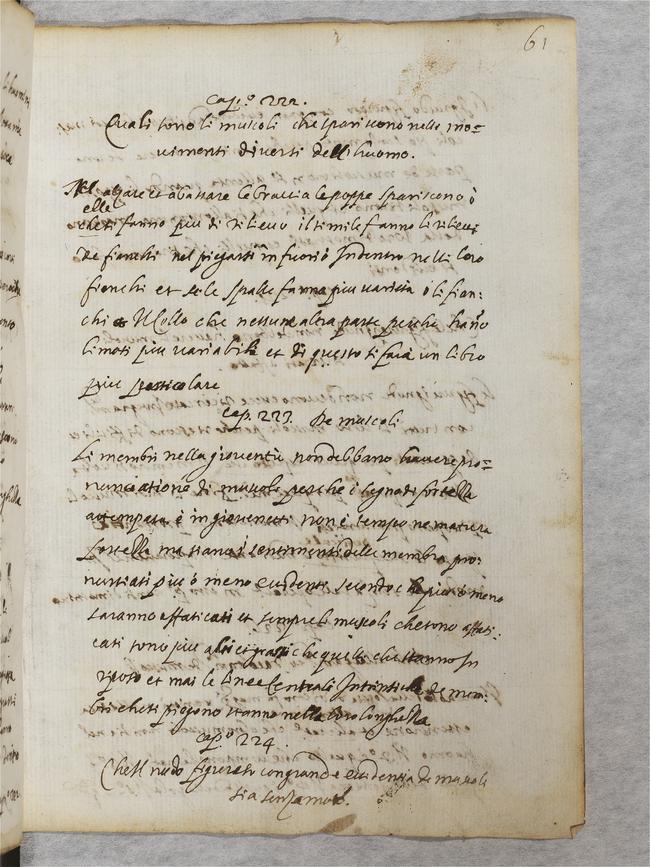 61
cap.º 222.
Quali sono li muscoli che spariscono nelle mo=
uimenti diuersi dell'huomo.
Nel alzare et abassare le braccia le poppe spariscono ò
elle
che si fanno piu di rilieuo il simile fanno li rilieui
de fianchi nel piegarsi in fuori ò Indentro nelli loro
fianchi et le spalle fanno piu uarieta ò li fian:
chi Il collo che nessune altra parte perche hano
li moti piu uariabili et di questo si fara un libro
piu particolare
cap. 223. De muscoli
Li membri nella giouentu non debbano hauere pro=
nunciatione di muscoli perche è segno di fortezza
attempata è in giouenati non è tempo ne matura
fortezza ma siano i sentimenti delle membra pro:
nuntiati piu ò meno euidenti secondo che piu ò meno
saranno affaticati et sempre li muscoli che sono affati:
cati sono piu alti e grossi che quelli che stanno In
riposo et mai le linee Centrali Intrinsiche de mem:
bri che si piegono stanno nella loro longhezza
cap.º 224.
Chel nudo figurato con grande euidentia de muscoli
sia senza moto.